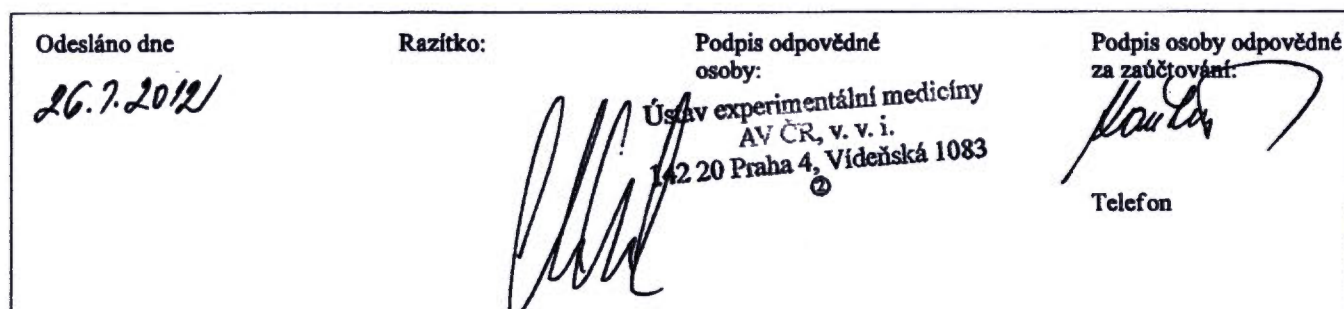 Odesláno dne
26.7.2012
Razítko:
Podpis odpovědné
osoby:
Ústav experimentální medicíny
AV ČR, v. v. i.
142 20 Praha 4, Vídeňská 1083
②
Podpis osoby odpovědné
za zaúčtování:
Telefon